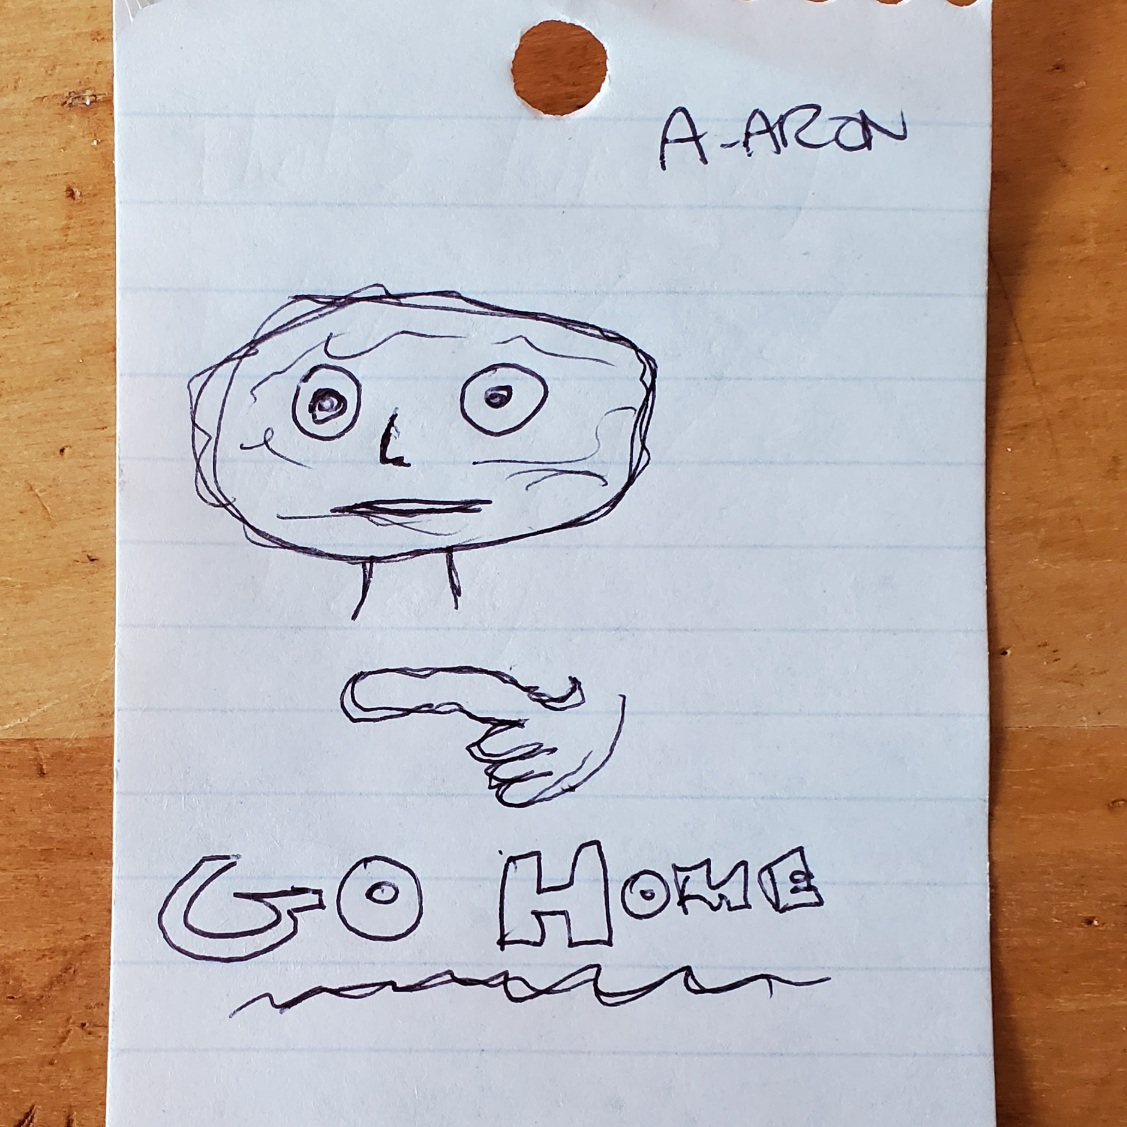 A-ARON
GO HOME